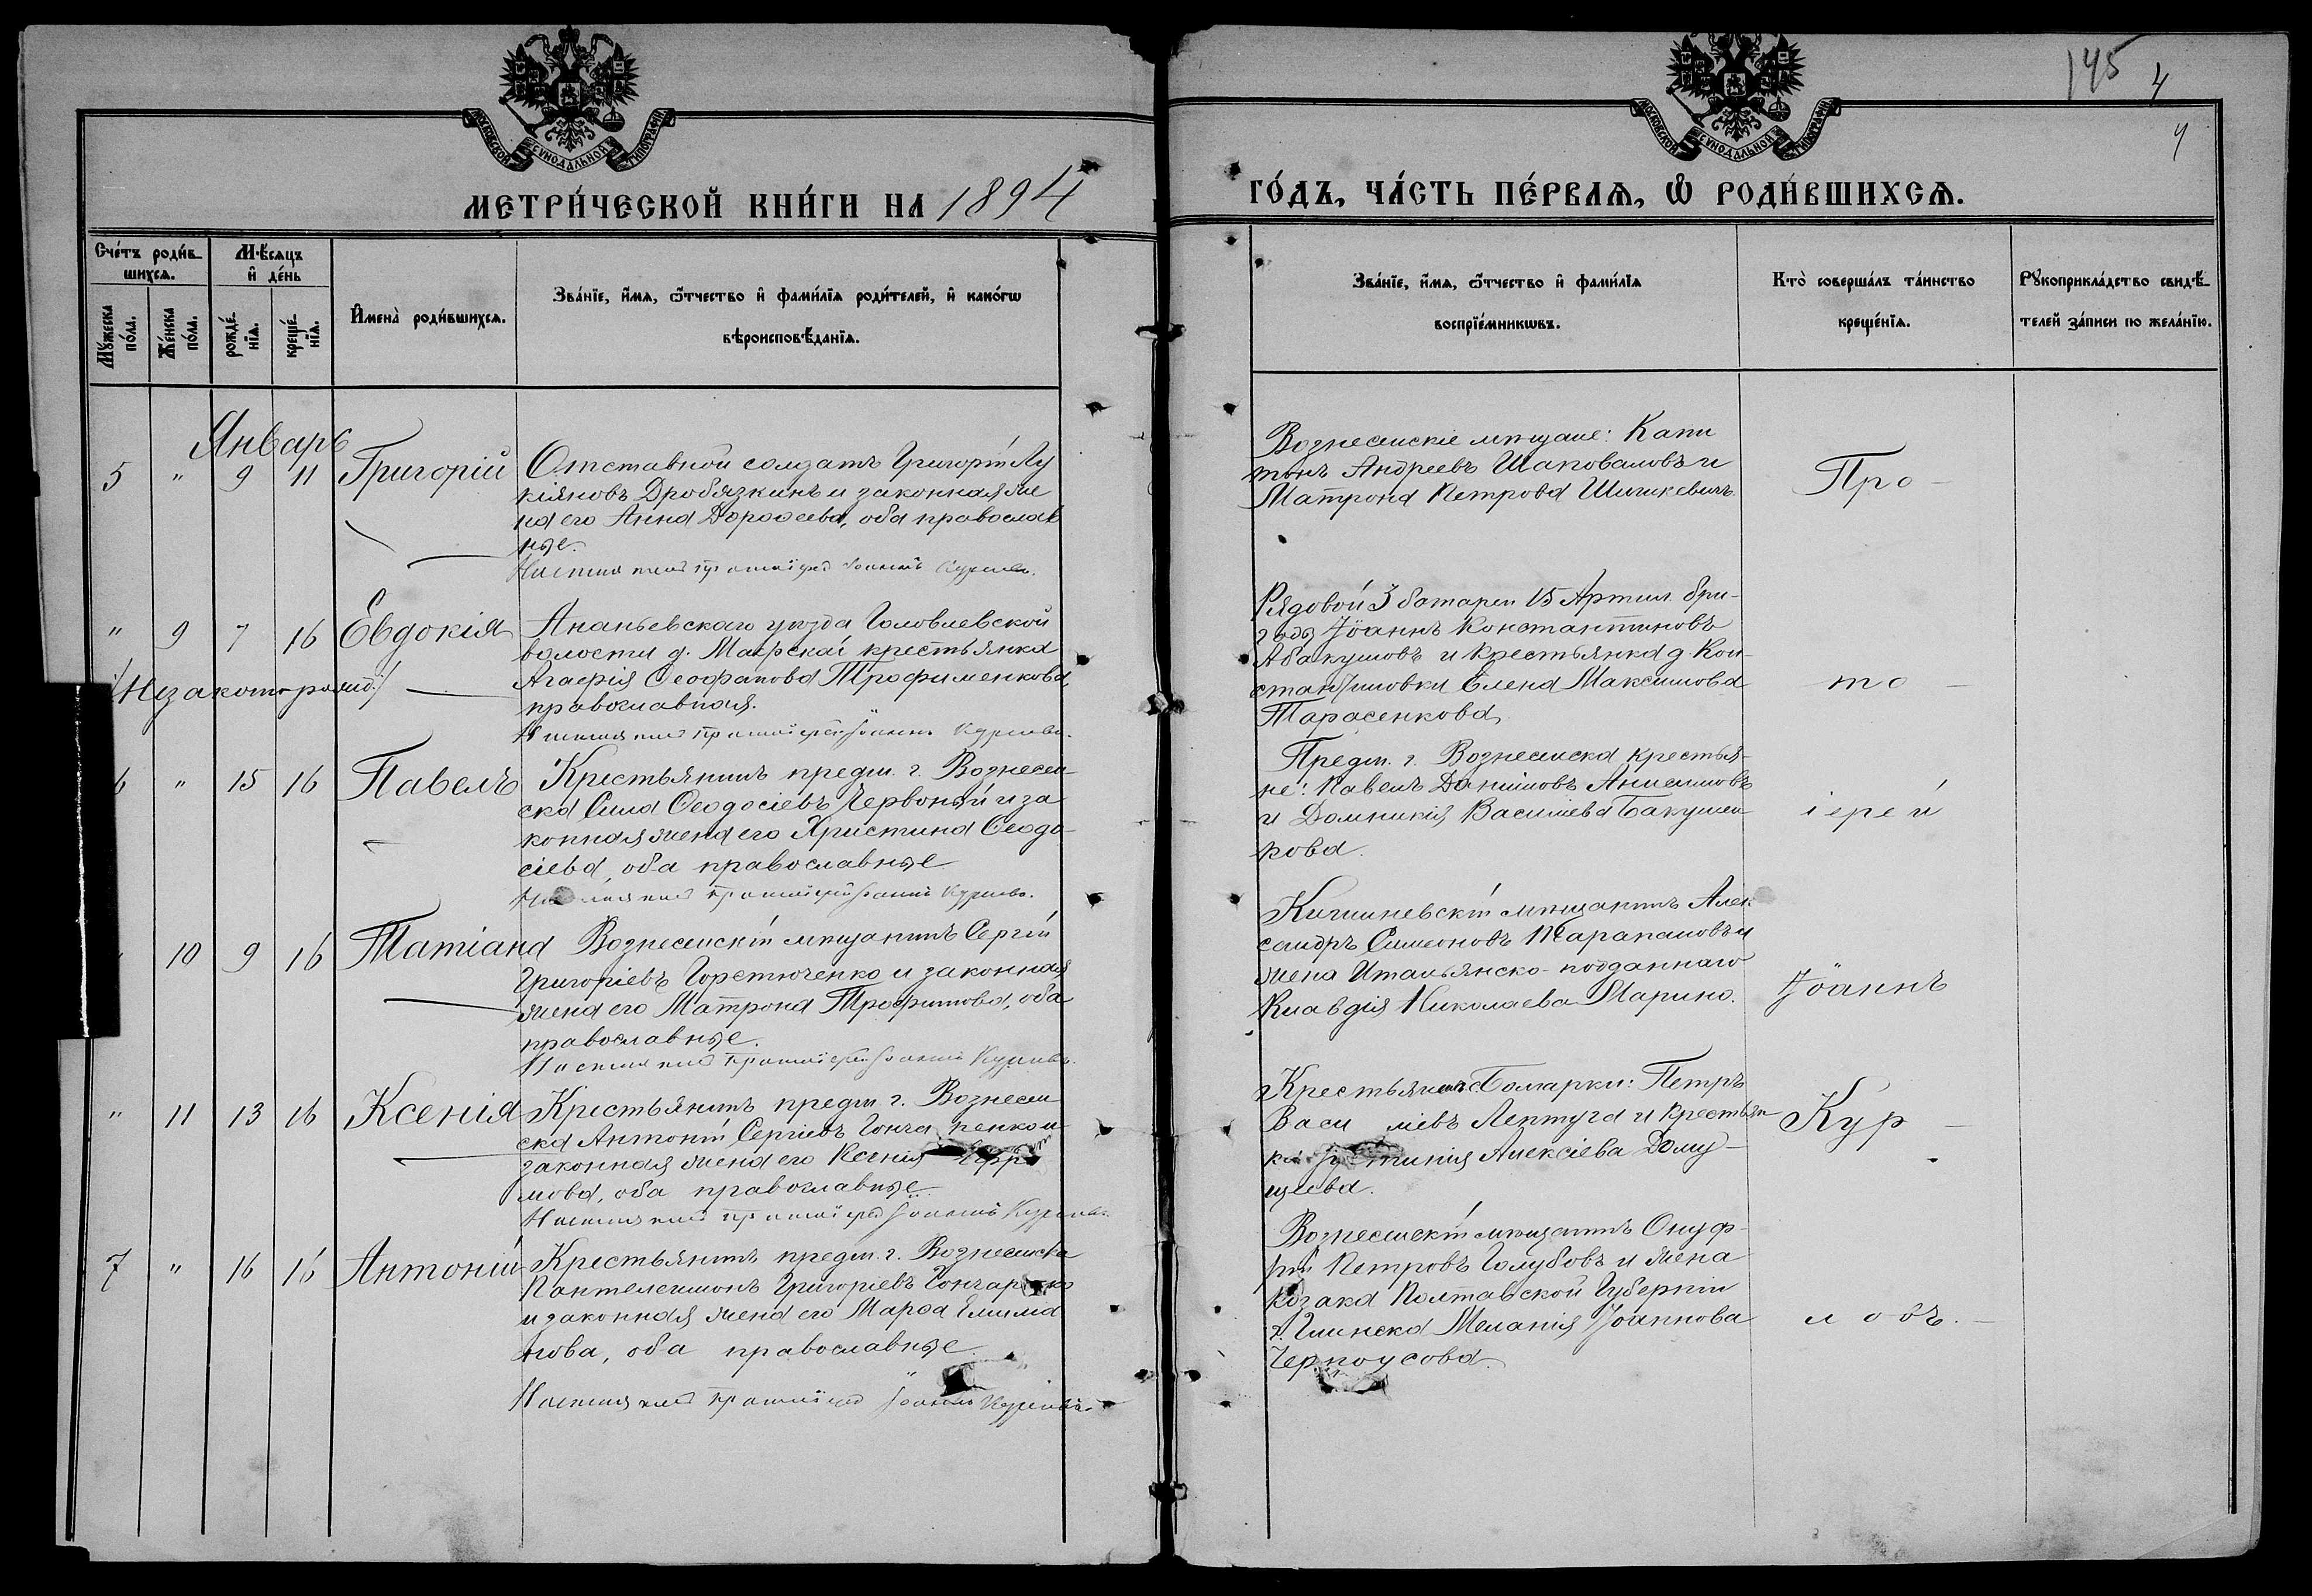 145 4
4
МОСКОВСКОЙ СѴНОДАЛЬНОЙ ТИПОГРАФІИ
МОСКОВСКОЙ СѴНОДАЛЬНОЙ ТИПОГРАФІИ
МЕТРИ́ЧЕСКОЙ КНИ́ГИ НА 1894
ГО́ДЪ, ЧА́СТЬ ПЕ́РВАѦ, Ѡ҆ РОДИ́ВШИХСѦ.
Сче́тъ роди́в-
шихсѧ.
Мꙋ́жеска
по́ла.
Же́нска
по́ла.
Мѣ́сѧцъ
и҆ де́нь
рожде́-
нїѧ.
креще́-
нїѧ.
И҆мена̀ роди́вшихсѧ.
Зва́нїе, и҆́мѧ, ѻ҆́тчество и҆ фами́лїѧ роди́телей, и҆ како́гѡ
вѣроисповѣ́данїѧ.
Зва́нїе, и҆́мѧ, ѻ҆́тчество и҆ фами́лїѧ
воспрїе́мникѡвъ.
Кто̀ соверша́лъ та́инство
креще́нїѧ.
Рꙋкоприкла́дство свидѣ́-
телей за́писи по жела́нїю.
Январь
5 " 9 11 Григорій
Отставной солдатъ Григорій Лу
кіяновъ Дробязкинъ и законная же
на его Анна Дороѳеева, оба православ
ные.
Настоятель протоіерей Іоаннъ Куриловъ.
Вознесенскіе мѣщане: Капи
тонъ Андреевъ Шаповаловъ и
Матрона Петрова Шишкевичъ.
Про-
" 9 7 16 Евдокія
/Незаконорожд:/
Ананьевскаго уѣзда Головлевской
волости д. Маерской крестьянка
Агафія Ѳеофанова Трофименкова,
православная.
Настоятель протоіерей Іоаннъ Куриловъ.
Рядовой 3 батареи 15 Артил. бри-
гады Іоаннъ Константиновъ
Абакумовъ и крестьянка д. Кон-
стантиновки Елена Максимова
Тарасенкова,
то-
6 " 15 16 Павелъ
Крестьянинъ предм. г. Вознесен-
ска Сила Ѳеодосіевъ Червоный и за
конная жена его Христина Ѳеодо-
сіева, оба православные
Настоятель протоіерей Іоаннъ Куриловъ.
Предм. г. Вознесенска крестья-
не: Павелъ Даниловъ Анисимовъ
и Домникія Василіева Бакумен-
кова.
іерей
10 9 16 Татіана
Вознесенскій мѣщанинъ Сергій
Григоріевъ Горетюченко и законная
жена его Матрона Трофимова, оба
православные.
Настоятель протоіерей Іоаннъ Куриловъ.
Кишиневскій мѣщанинъ Алек
сандръ Симеоновъ Тарапановъ и
жена Итальянско-подданнаго
Клавдія Николаева Марино.
Іоаннъ
" 11 13 16 Ксенія
Крестьянинъ предм. г. Вознесен
ска Антоній Сергіевъ Гонча ренко и
законная жена его Ксенія Ефре
мова, оба православные.
Настоятель протоіерей Іоаннъ Куриловъ.
Крестьяне с. Болгарки: Петръ
Васи ліевъ Лептуга и крестьян
ка Іустинія Алексіева Дому-
щиева.
Кур-
7 " 16 16 Антоній
Крестьянинъ предм. г. Вознесенска
Пантелеимонъ Григоріевъ Гончаренко
и законная жена его Марѳа Емилиа
нова, оба православные
Настоятель протоіерей Іоаннъ Куриловъ.
Вознесенскій мѣщанинъ Онуф-
рій Петровъ Голубовъ и жена
козака Полтавской Губерніи
г. Глинска Меланія Іоаннова
Черноусова.
ловъ.-